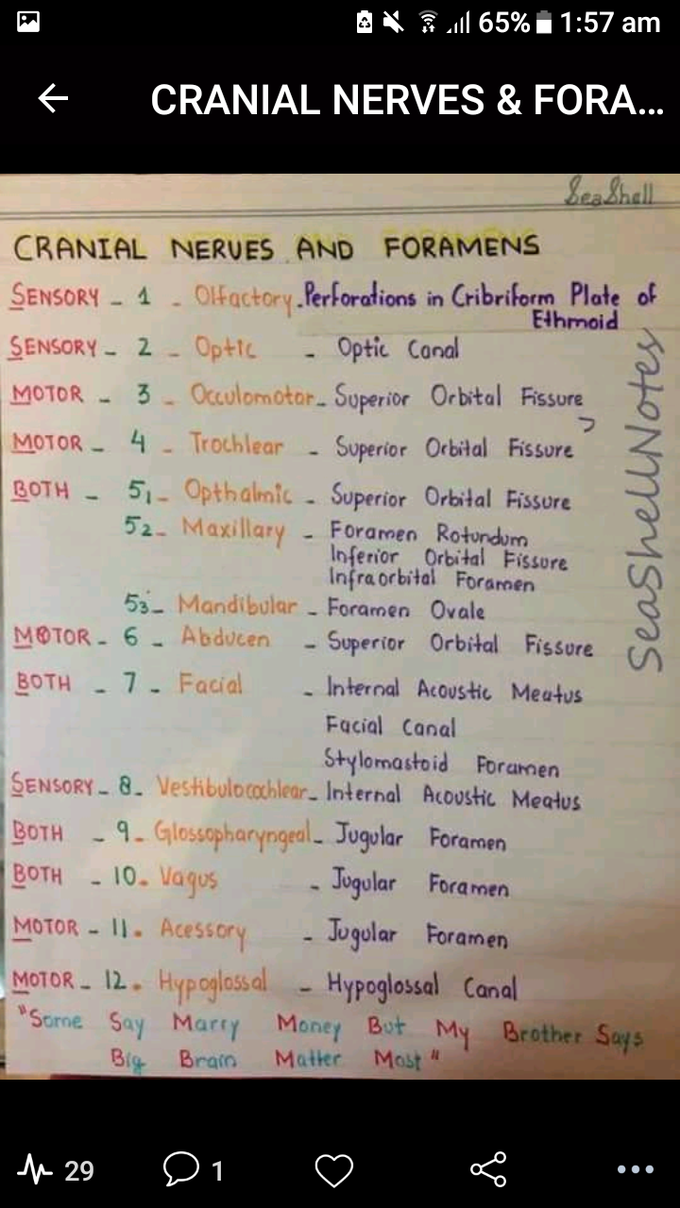 65% 1:57 am
CRANIAL NERVES & FORA...
SeaShell
CRANIAL NERVES AND FORAMENS
SENSORY - 1 - Olfactory - Perforations in Cribriform Plate of
Ethmoid
SENSORY - 2 - Optic - Optic Canal
MOTOR - 3 - Occulomotor - Superior Orbital Fissure
MOTOR - 4 - Trochlear - Superior Orbital Fissure
BOTH - 51 - Opthalmic - Superior Orbital Fissure
52 - Maxillary - Foramen Rotundum
Inferior Orbital Fissure
Infraorbital Foramen
53 - Mandibular - Foramen Ovale
MOTOR - 6 - Abducen - Superior Orbital Fissure
BOTH - 7 - Facial - Internal Acoustic Meatus
Facial Canal
Stylomastoid Foramen
SENSORY - 8 - Vestibulocochlear - Internal Acoustic Meatus
BOTH - 9 - Glossopharyngeal - Jugular Foramen
BOTH - 10. Vagus - Jugular Foramen
MOTOR - 11. Acessory - Jugular Foramen
MOTOR - 12. Hypoglossal - Hypoglossal Canal
"Some Say Marry Money But My Brother Says
Big Brain Matter Most"
SeaShellNotes
29 1